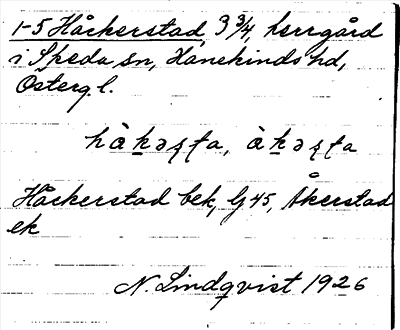 1-5 Håckerstad, 3 3/4, herrgård
i Skeda sn, Hanekinds hd,
Österg. l.
hàkəʂʈa, àkəʂʈa
Håckerstad bek, Gj 45, Åkerstad
ek
N. Lindqvist 1926